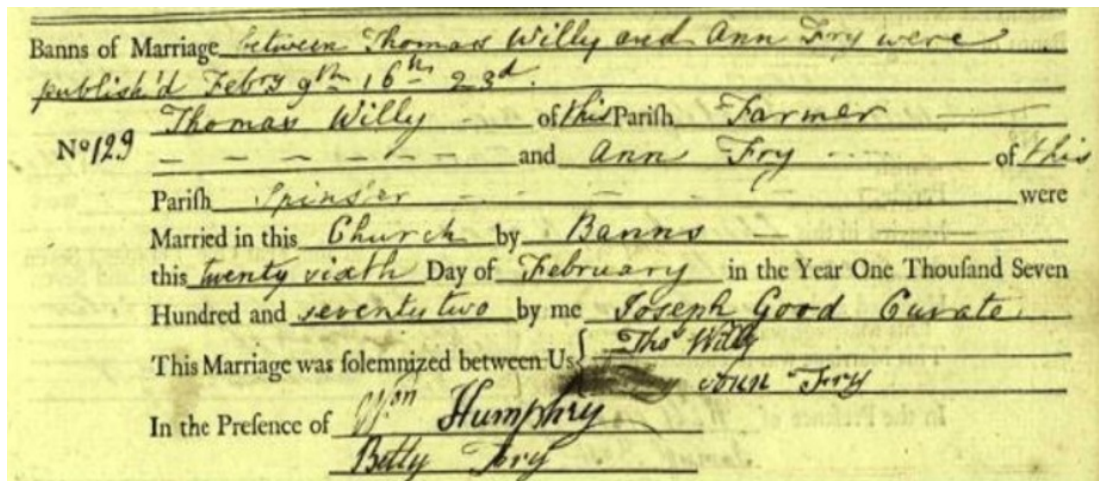 Banns of Marriage between Thomas Willy and Ann Fry were
publish'd Febry 9th 16th 23d.
Thomas Willy of this Pariſh Farmer
No 129 and Ann Fry of this
Pariſh Spinster were
Married in this Church by Banns
this twenty sixth Day of February in the Year One Thouſand Seven
Hundred and seventy two by me Joseph Good Curate
This Marriage was ſolemnized between Us { Thos Willy
Ann Fry
In the Preſence of Wm Humphry
Betty Fry